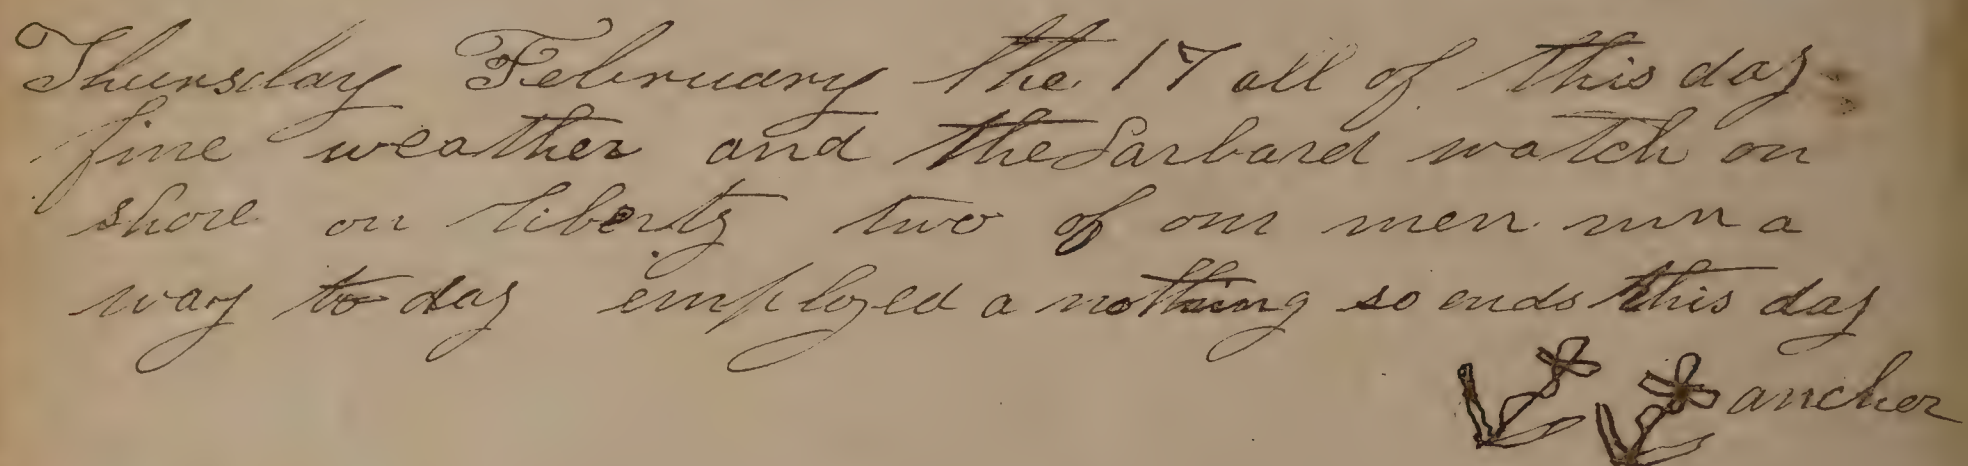 Thursday February the 17 all of this day
fine weather and the Larbard watch on
shore on liberty two of our men run a
way to day employed a nothing so ends this day
ancher